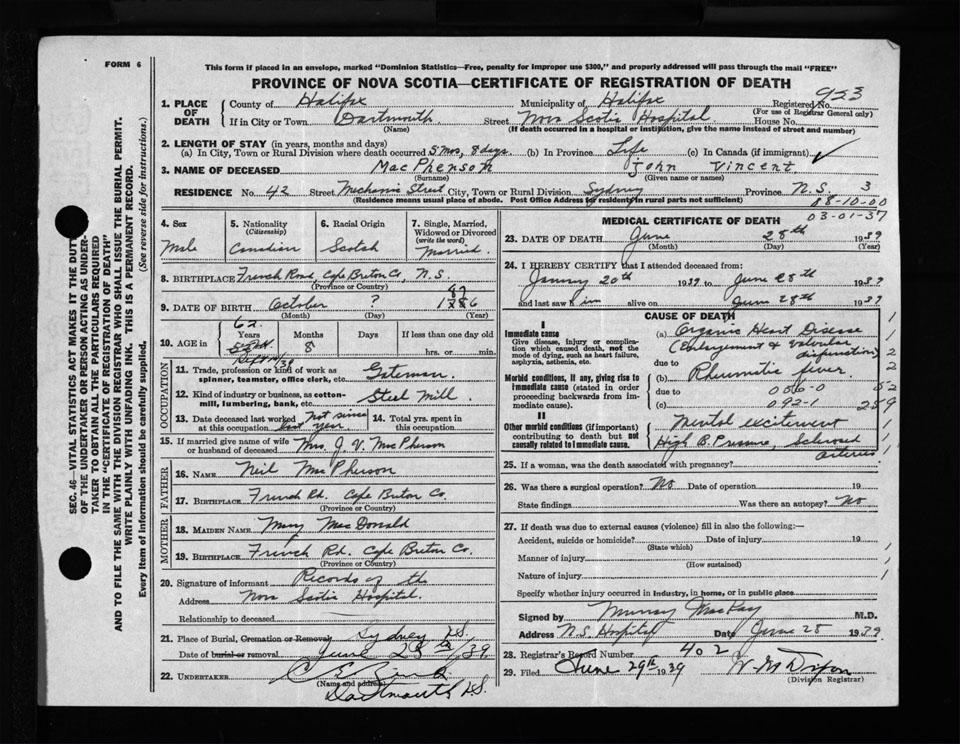 FORM 6
This form if placed in an envelope, marked "Dominion Statistics—Free, penalty for improper use $300," and properly addressed will pass through the mail "FREE"
PROVINCE OF NOVA SCOTIA—CERTIFICATE OF REGISTRATION OF DEATH
923
1. PLACE OF DEATH
County of Halifax Municipality of Halifax Registered No.
(For use of Registrar General only)
If in City or Town Dartmouth Street Nova Scotia Hospital House No.
(Name) (If death occurred in a hospital or institution, give the name instead of street and number)
2. LENGTH OF STAY (in years, months and days)
(a) In City, Town or Rural Division where death occurred 5 mos, 8 days. (b) In Province Life (c) In Canada (if immigrant) ✓
3. NAME OF DECEASED MacPherson John Vincent
(Surname) (Given name or names)
RESIDENCE No. 42 Street Mechanic Street City, Town or Rural Division Sydney Province N.S. 3
(Residence means usual place of abode. Post Office Address for residents in rural parts not sufficient)
88-10-00
03-01-37
4. Sex
Male
5. Nationality
(Citizenship)
Canadian
6. Racial Origin
Scotch
7. Single, Married, Widowed or Divorced
(write the word)
Married.
8. BIRTHPLACE French Road, Cape Breton Co, N.S.
(Province or Country)
9. DATE OF BIRTH October ? 18
(Month) (Day) (Year)
10. AGE in
62
Years Months Days If less than one day old
8 hrs. or min.
OCCUPATION
11. Trade, profession or kind of work as spinner, teamster, office clerk, etc. Gateman.
12. Kind of industry or business, as cotton-mill, lumbering, bank, etc. Steel Mill.
13. Date deceased last worked at this occupation Not since last year.
14. Total yrs. spent in this occupation
15. If married give name of wife or husband of deceased Mrs. J. V. MacPherson
FATHER
16. NAME Neil MacPherson
17. BIRTHPLACE French Rd. Cape Breton Co.
(Province or Country)
MOTHER
18. MAIDEN NAME Mary MacDonald
19. BIRTHPLACE French Rd. Cape Breton Co.
(Province or Country)
20. Signature of informant Records of the
Address Nova Scotia Hospital.
Relationship to deceased
21. Place of Burial, Cremation or Removal Sydney N.S.
Date of burial or removal June 28th/39
22. UNDERTAKER
(Name and address)
Dartmouth N.S.
MEDICAL CERTIFICATE OF DEATH
23. DATE OF DEATH June 28th 1939
(Month) (Day) (Year)
24. I HEREBY CERTIFY that I attended deceased from:
January 20th 1939 to June 28th 1939
and last saw him alive on June 28th 1939
CAUSE OF DEATH
I
Immediate cause
Give disease, injury or complication which caused death, not the mode of dying, such as heart failure, asphyxia, asthenia, etc.
(a) Organic Heart Disease
(Enlargement & Valvular
due to
Morbid conditions, if any, giving rise to immediate cause (stated in order proceeding backwards from immediate cause).
(b) Rheumatic fever.
due to 056-0
(c) 092-1
52
259
II
Other morbid conditions (if important) contributing to death but not causally related to immediate cause.
Mental excitement
High B. Pressure, Sclerosed
arteries
25. If a woman, was the death associated with pregnancy?
26. Was there a surgical operation? No Date of operation 19
State findings Was there an autopsy? No
27. If death was due to external causes (violence) fill in also the following:—
Accident, suicide or homicide? Date of injury 19
(State which)
Manner of injury
(How sustained)
Nature of injury
Specify whether injury occurred in industry, in home, or in public place
Signed by Murray MacKay M.D.
Address N.S. Hospital Date June 28 1939
28. Registrar's Record Number 402
29. Filed June 29th 1939
(Division Registrar)
SEC. 46—VITAL STATISTICS ACT MAKES IT THE DUTY
OF THE UNDERTAKER OR PERSON ACTING AS UNDER-
TAKER TO OBTAIN ALL THE PARTICULARS REQUIRED
IN THE "CERTIFICATE OF REGISTRATION OF DEATH"
AND TO FILE THE SAME WITH THE DIVISION REGISTRAR WHO SHALL ISSUE THE BURIAL PERMIT.
WRITE PLAINLY WITH UNFADING INK. THIS IS A PERMANENT RECORD.
Every item of information should be carefully supplied. (See reverse side for instructions.)